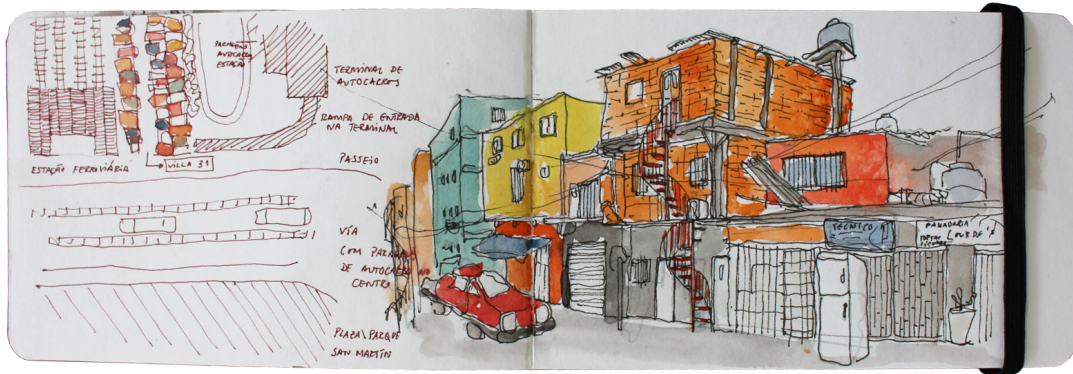 PARAGEM
AUTOCARRO
ESTAÇÃO
TERMINAL DE
AUTOCARROS
RAMPA DE ENTRADA
NA TERMINAL
PASSEIO
ESTAÇÃO FERROVIÁRIA
VILLA 31
VÍA
COM PARAGEM
DE AUTOCARRO NO
CENTRO
PLAZA\PARQUE
SAN MARTÍN
TECNICO
PANADERÍA